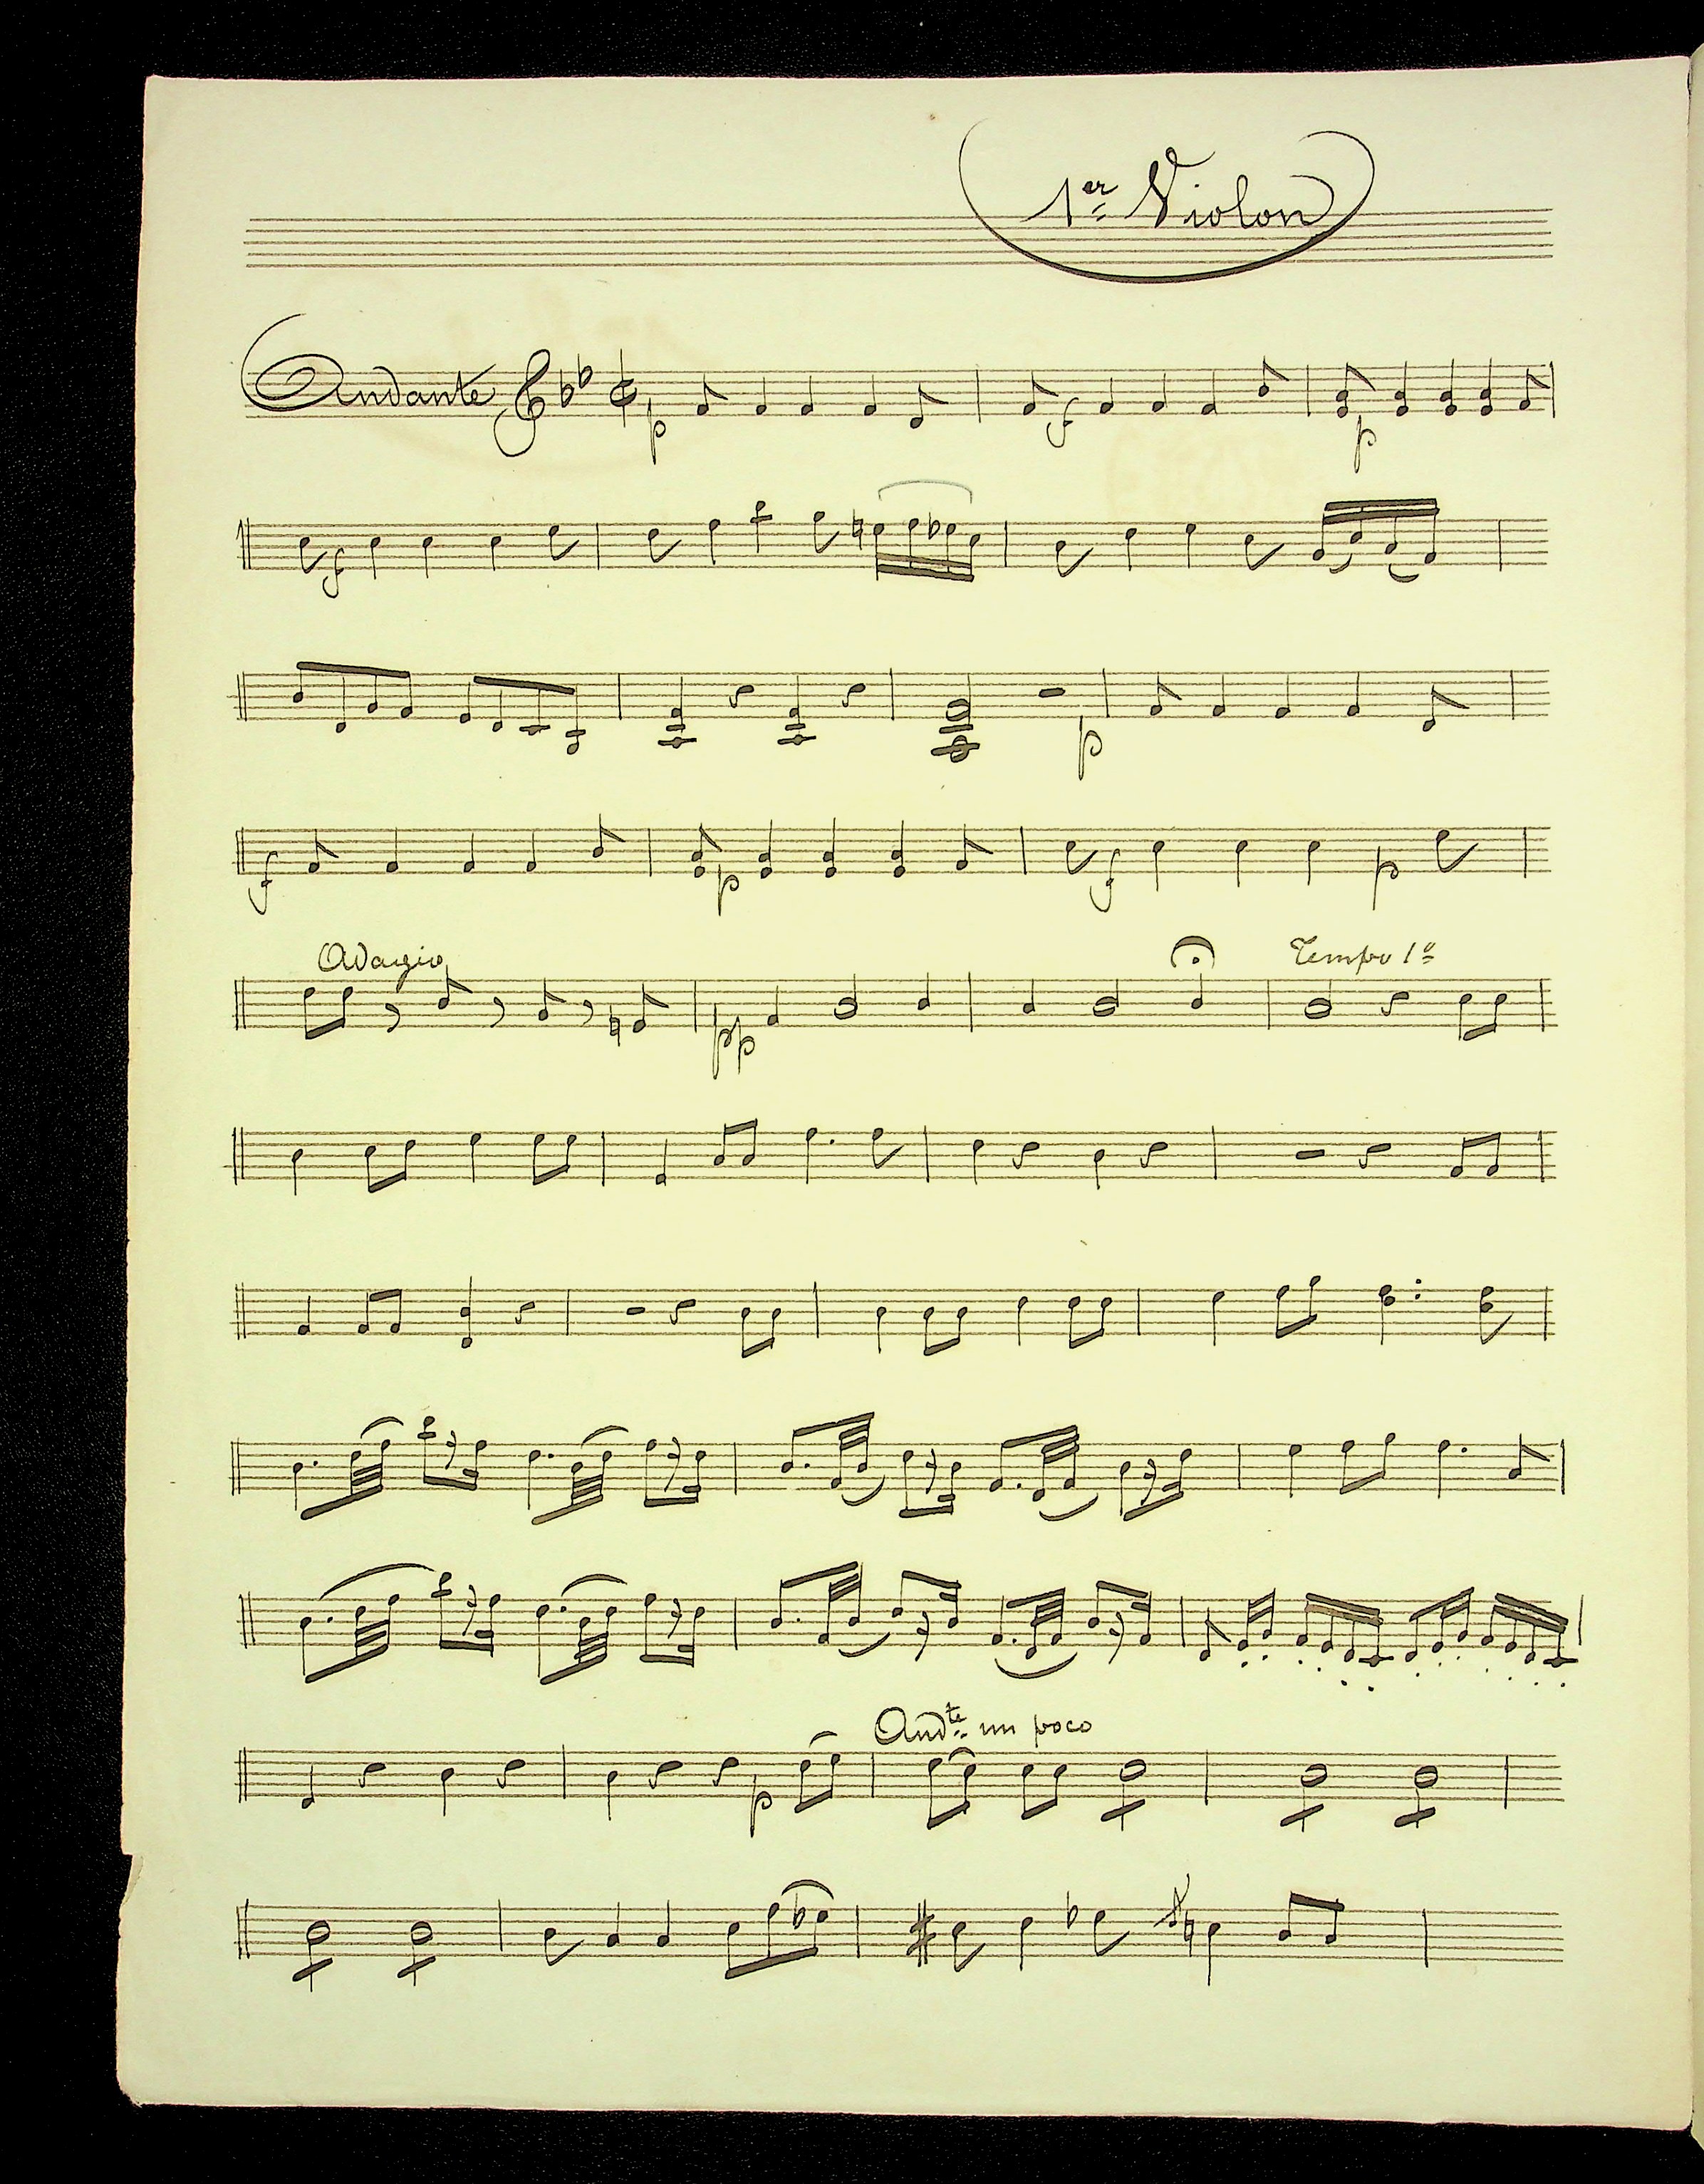 1er Violon
Andante p f p
f
p
f p f p
Adagio Tempo 1o
pp
Andte un poco
p